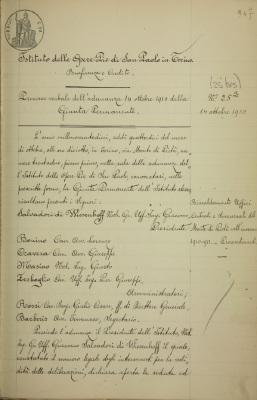 Istituto delle Opere Pie di San Paolo in Torino
Beneficenza e Credito
(25 bis)
Processo verbale dell'adunanza 14 ottobre 1910 della
Giunta Permanente.
N° 25
14 ottobre 1910
L'anno millenovecentodieci, addì quattordici del mese
di ottobre, alle ore diciotto, in Torino, via Monte di Pietà,
trentadue, piano primo, nella sala delle adunanze del
l'Istituto delle Opere Pie di San Paolo, convocatasi, nelle
prescritte forme, la Giunta Permanente dell'Istituto
risultano presenti i Signori:
Salvadori di Wiesenhoff Nob. Gr. Uff. Ing. Giacomo,
Presidente
Uffici
Centrali e Succursali del
Monte di Pietà
Bonino Cav. Avv. Lorenzo
Cravero Cav. Avv. Giuseppe
Nob. Ing. Giusto
Comm. Uff. Ing. Giuseppe
Amministratori;
Rossi Cav. Ing. Guido Cesare, ff. di Direttore Generale,
Barberis Avv. Segretario.
Presiede l'adunanza il Presidente dell'Istituto, Nob.
Gr. Uff. Ing. Giacomo Salvadori di Wiesenhoff il quale,
constatato il numero legale degli intervenuti per la vali-
dità delle deliberazioni, dichiara aperta la seduta ed